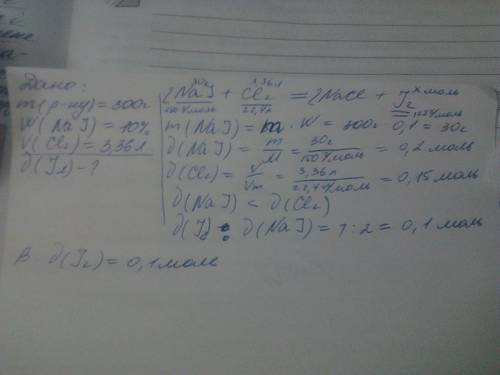 Дано:
m(р-ну) = 300г
W(NaJ) = 10%
V(Cl₂) = 3,36л
∂(J₂) - ?
30г 3,36л x моль
2NaJ + Cl₂ = 2NaCl + J₂
150г/моль 22,4л
m(NaJ) = m · W = 300г · 0,1 = 30г
∂(NaJ) = m/M = 30г/150г/моль = 0,2 моль
∂(Cl₂) = V/Vm = 3,36л/22,4л/моль = 0,15моль
∂(NaJ) < ∂(Cl₂)
∂(J₂) : ∂(NaJ) = 1 : 2 = 0,1 моль
В ∂(J₂) = 0,1моль